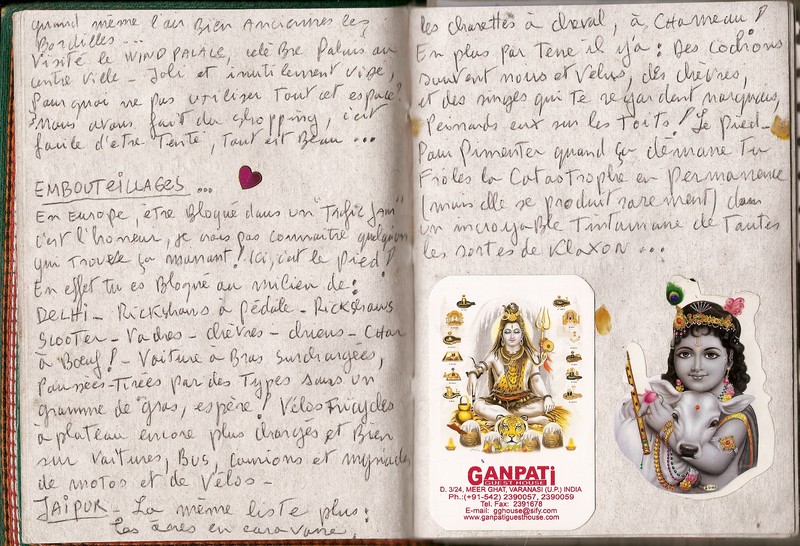 quand même l'air Bien Anciennes les
Bordilles...
Visité le WIND PALACE, célèBre Palais au
centre Ville - Joli et inutilement vide,
Pourquoi ne pas utiliser Tout cet espace?
Nous avons fait du shopping, c'est
facile d'être Tenté, Tout est Beau...
EMBOUTEILLAGES ...
En Europe, être Bloqué dans un "Trafic Jam"
c'est l'horreur, je vais pas connaître quelqu'un
qui Trouve ça marrant! Ici, c'est le Pied!
En effet tu es Bloqué au milieu de:
DELHI - Rickshaws à pédale - Rickshaws
Scooter - Vaches - chèvres - chiens - Char
à Boeuf! - Voiture à Bras Surchargées,
Poussées-Tirées par des Types sans un
gramme de gras, espère! Vélos Tricycles
à plateau encore plus chargés et Bien
sur voitures, Bus, camions et myriades
de motos et de Vélos -
JAIPUR - La même liste plus:
Les ânes en caravane,
les charettes à cheval, à Chameau!
En plus par Terre il y'a: Des cochons
souvent noirs et velus, des chèvres,
et des singes qui te regardent narquois,
Peinards eux sur les Toits! Le Pied -
Pour Pimenter quand ça démarre Tu
Frôles la Catastrophe en Permanence
(mais elle se produit rarement) dans
un incroyable Tintamarre de Toutes
les sortes de Klaxon ...
GANPATi
GUEST HOUSE
D. 3/24, MEER GHAT, VARANASI (U.P.) INDIA
Ph.:(+91-542) 2390057, 2390059
Tel. Fax: 2391678
E-mail: gghouse@sify.com
www.ganpatiguesthouse.com